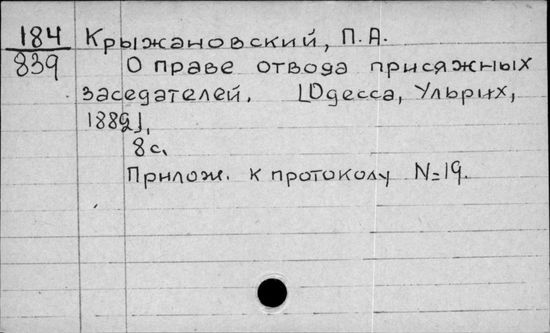 184 Крыжановский, П.А.
839 О праве отвода присяжных
заседателей. [Одесса, Ульрих,
1889],
8 с.
Прилож. к протоколу №19.